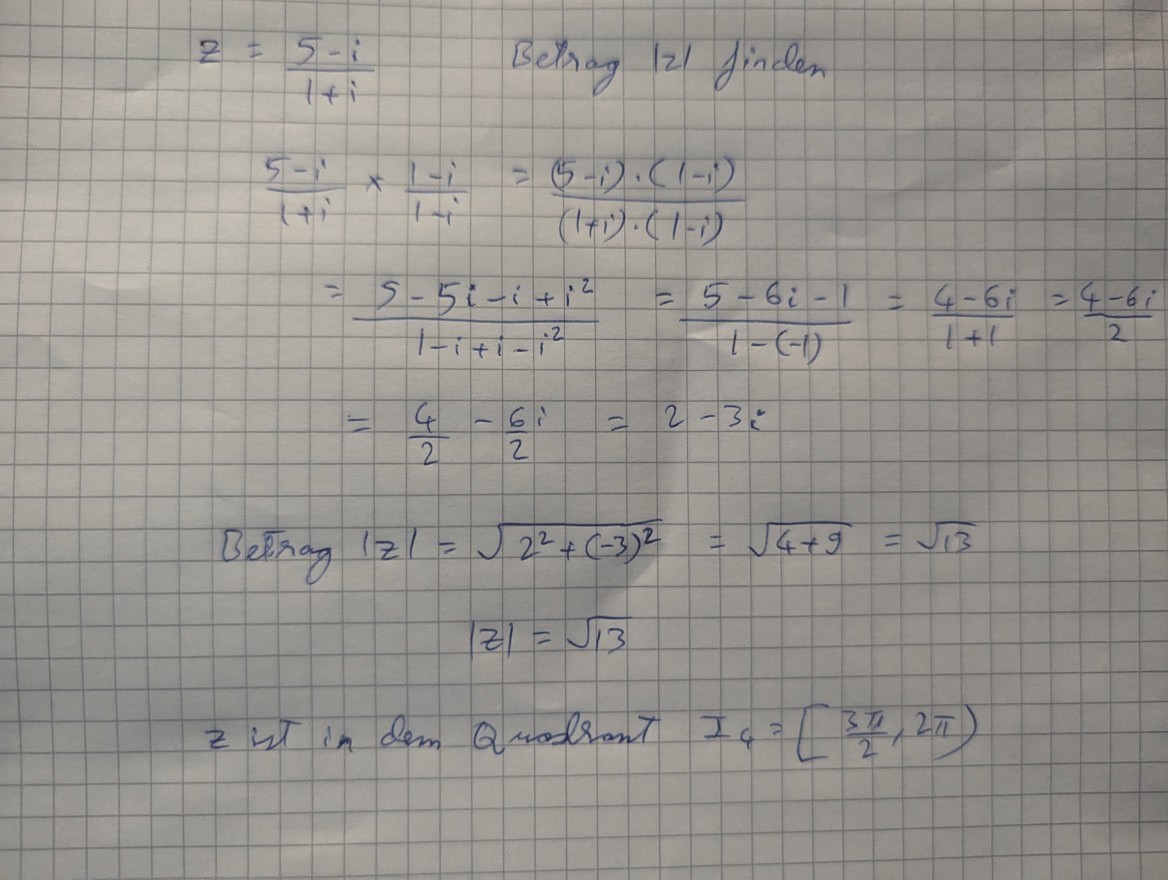 z = (5-i)/(1+i) Betrag |z| finden
(5-i)/(1+i) × (1-i)/(1-i) = ((5-i)·(1-i))/((1+i)·(1-i))
= (5-5i-i+i²)/(1-i+i-i²) = (5-6i-1)/(1-(-1)) = (4-6i)/(1+1) = (4-6i)/2
= 4/2 - 6/2 i = 2-3i
Betrag |z| = √(2²+(-3)²) = √(4+9) = √13
|z| = √13
z ist in dem Quadrant I₄ = [3π/2, 2π)